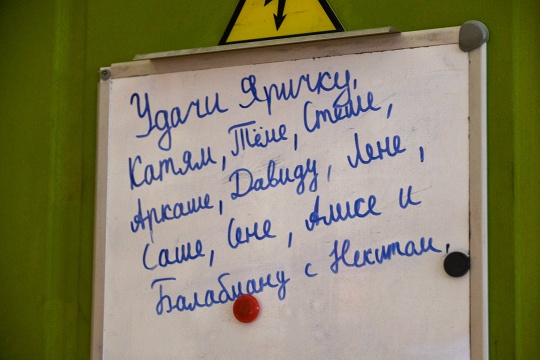 Удачи Яричку,
Катям, Тёме, Стёше,
Аркаше, Давиду, Лене,
Саше, Сене, Алисе и
Балабиану с Некитам.